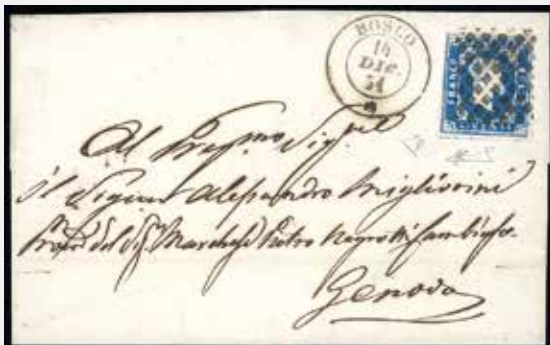 BOSCO
16
DIC.
51
FRANCO
Al Preg.mo Sig.
il Signor Alessandro Migliorini
del Marchese Pietro Negrotti Cambiaso
Genova